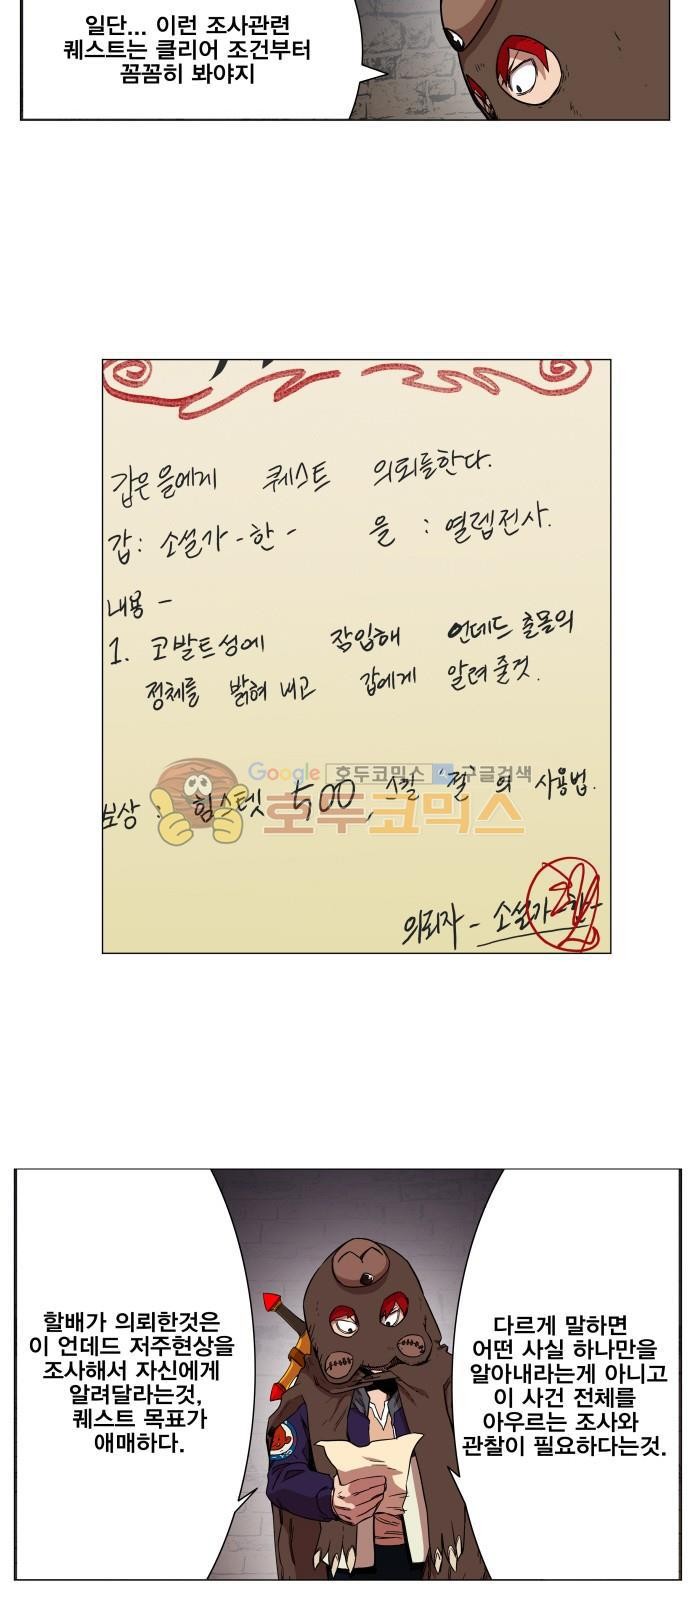 일단... 이런 조사관련
퀘스트는 클리어 조건부터
꼼꼼히 봐야지
갑은 을에게 퀘스트 의뢰를한다.
갑: 소설가-한- 을 : 열렙전사.
내용 -
1. 코발트성에 잠입해 언데드 출몰의
정체를 밝혀 내고 갑에게 알려 줄것.
Google 호두코믹스 구글검색
보상 : 힘스텟 500, 스킬 '절'의 사용법.
호두코믹스
의뢰자 - 소설가-한-
할배가 의뢰한것은
이 언데드 저주현상을
조사해서 자신에게
알려달라는것,
퀘스트 목표가
애매하다.
다르게 말하면
어떤 사실 하나만을
알아내라는게 아니고
이 사건 전체를
아우르는 조사와
관찰이 필요하다는것.